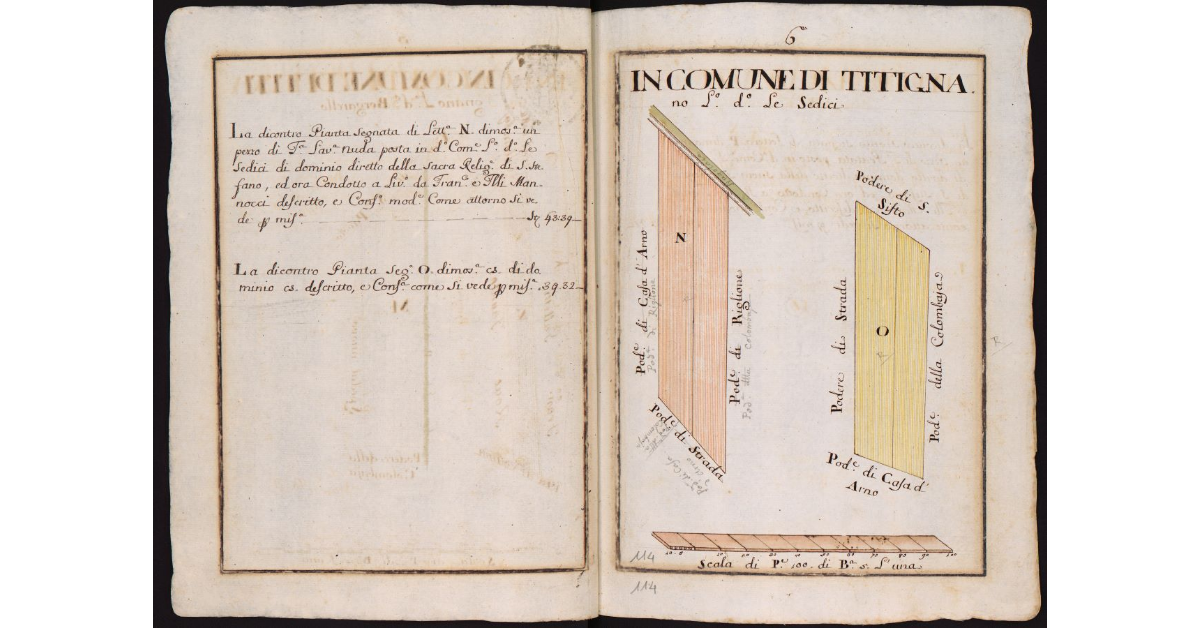 La dicontro Pianta segnata di Lett.ª N. dimos.ª un
pezzo di T.ª Lav.ª nuda posta in d.º Com.e L.º d.º Le
Sedici di dominio diretto della Sacra Relig.e di S. Ste
fano, ed ora Condotto a Liv.º da Fran.º e Flli Man-
nocci descritto, e Conf.º mod.º Come attorno si ve
de p mis.ª Sq 43:39
La dicontro Pianta seg.ª O. dimos.ª cs. di do
minio cs. descritto, e Conf.ª come si vede p mis.ª 39.32
6
IN COMUNE DI TITIGNA
no L.º d.º Le Sedici
N
Pod.e di Casa d'Arno
Pod.e di Riglione
Pod.e di Riglione
Pod.e di Strada
Podere di S.
Sisto
Podere di Strada
O
Pod.e della Colombaja
Pod.e di Casa d'
Arno
10 0 10 20 30 40 50 60 70 80 90 100
Scala di P.e 100. di B.ª 5. L'una
114
114